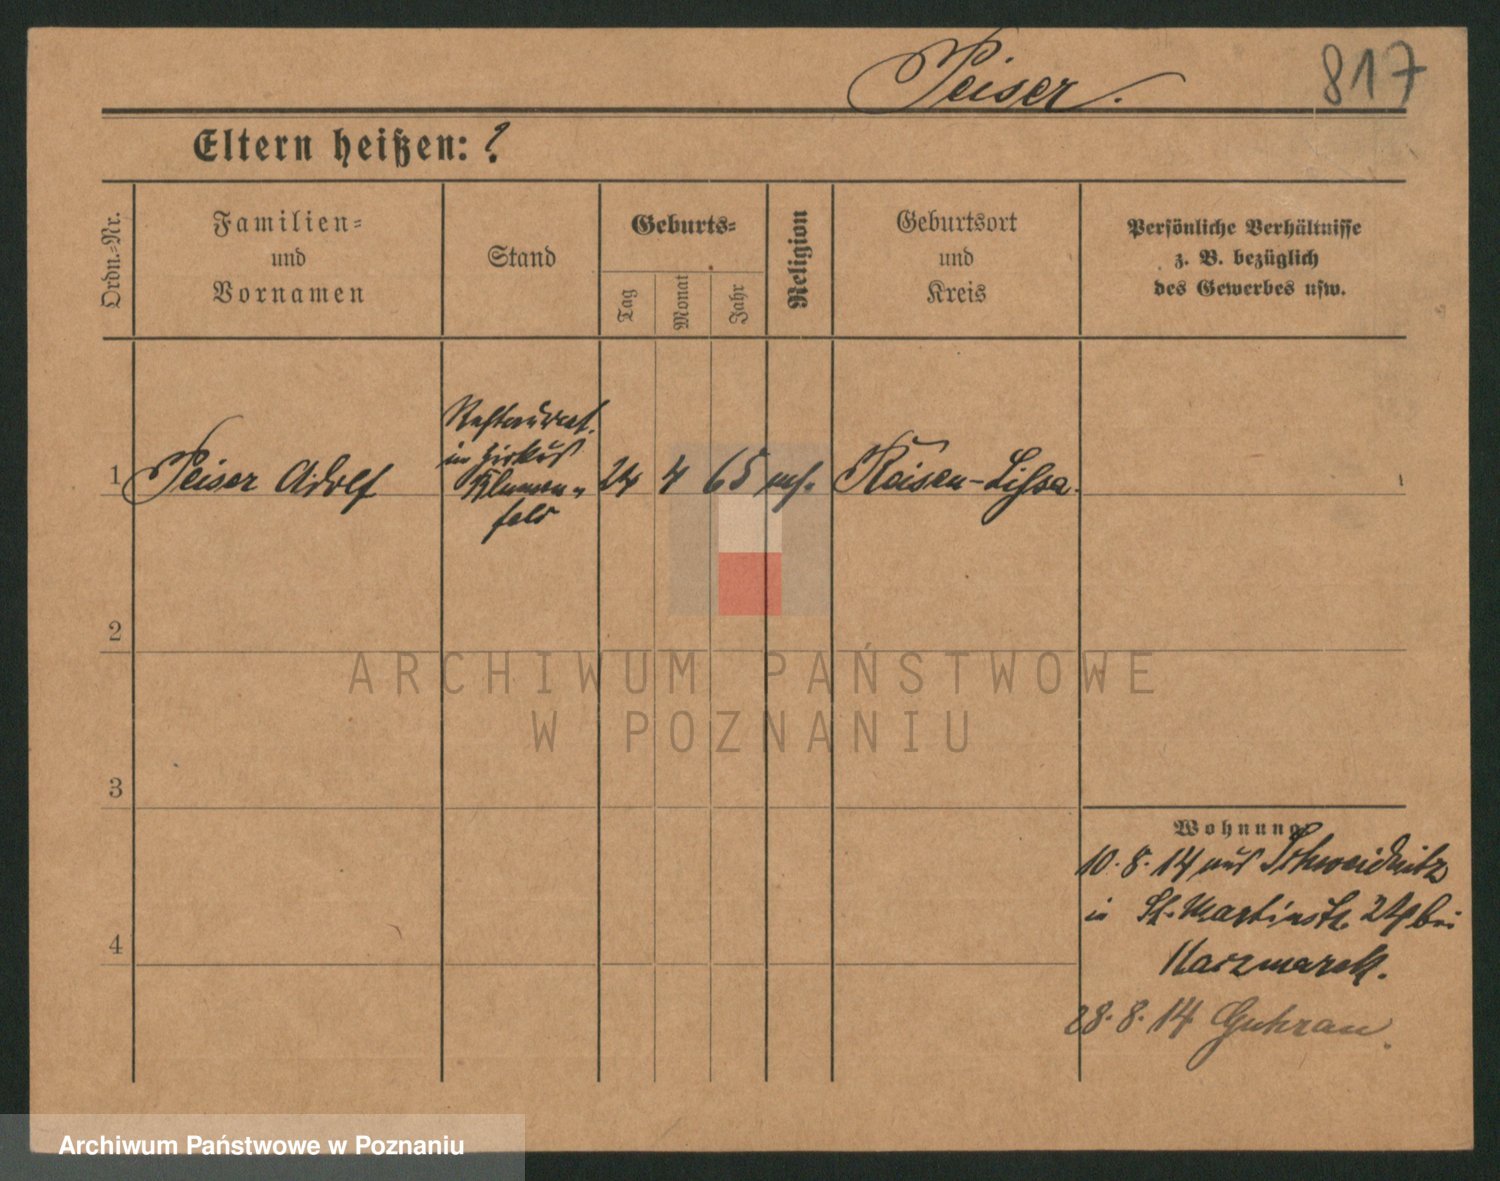 Peiser.
817
Eltern heißen: ?
Ordn.-Nr.
Familien-
und
Vornamen
Stand
Geburts-
Tag
Monat
Jahr
Religion
Geburtsort
und
Kreis
Persönliche Verhältnisse
z. B. bezüglich
des Gewerbes usw.
1
Peiser Adolf
Restaurat.
in Zirkus
Blumen-
feld
24
4
65
Reisen-Lissa.
2
ARCHIWUM PAŃSTWOWE
W POZNANIU
3
Wohnung
10.8.14 aus Schweidnitz
in St. Martinstr. 24 bei
Kaczmarek.
4
28.8.14 Guhrau.
Archiwum Państwowe w Poznaniu